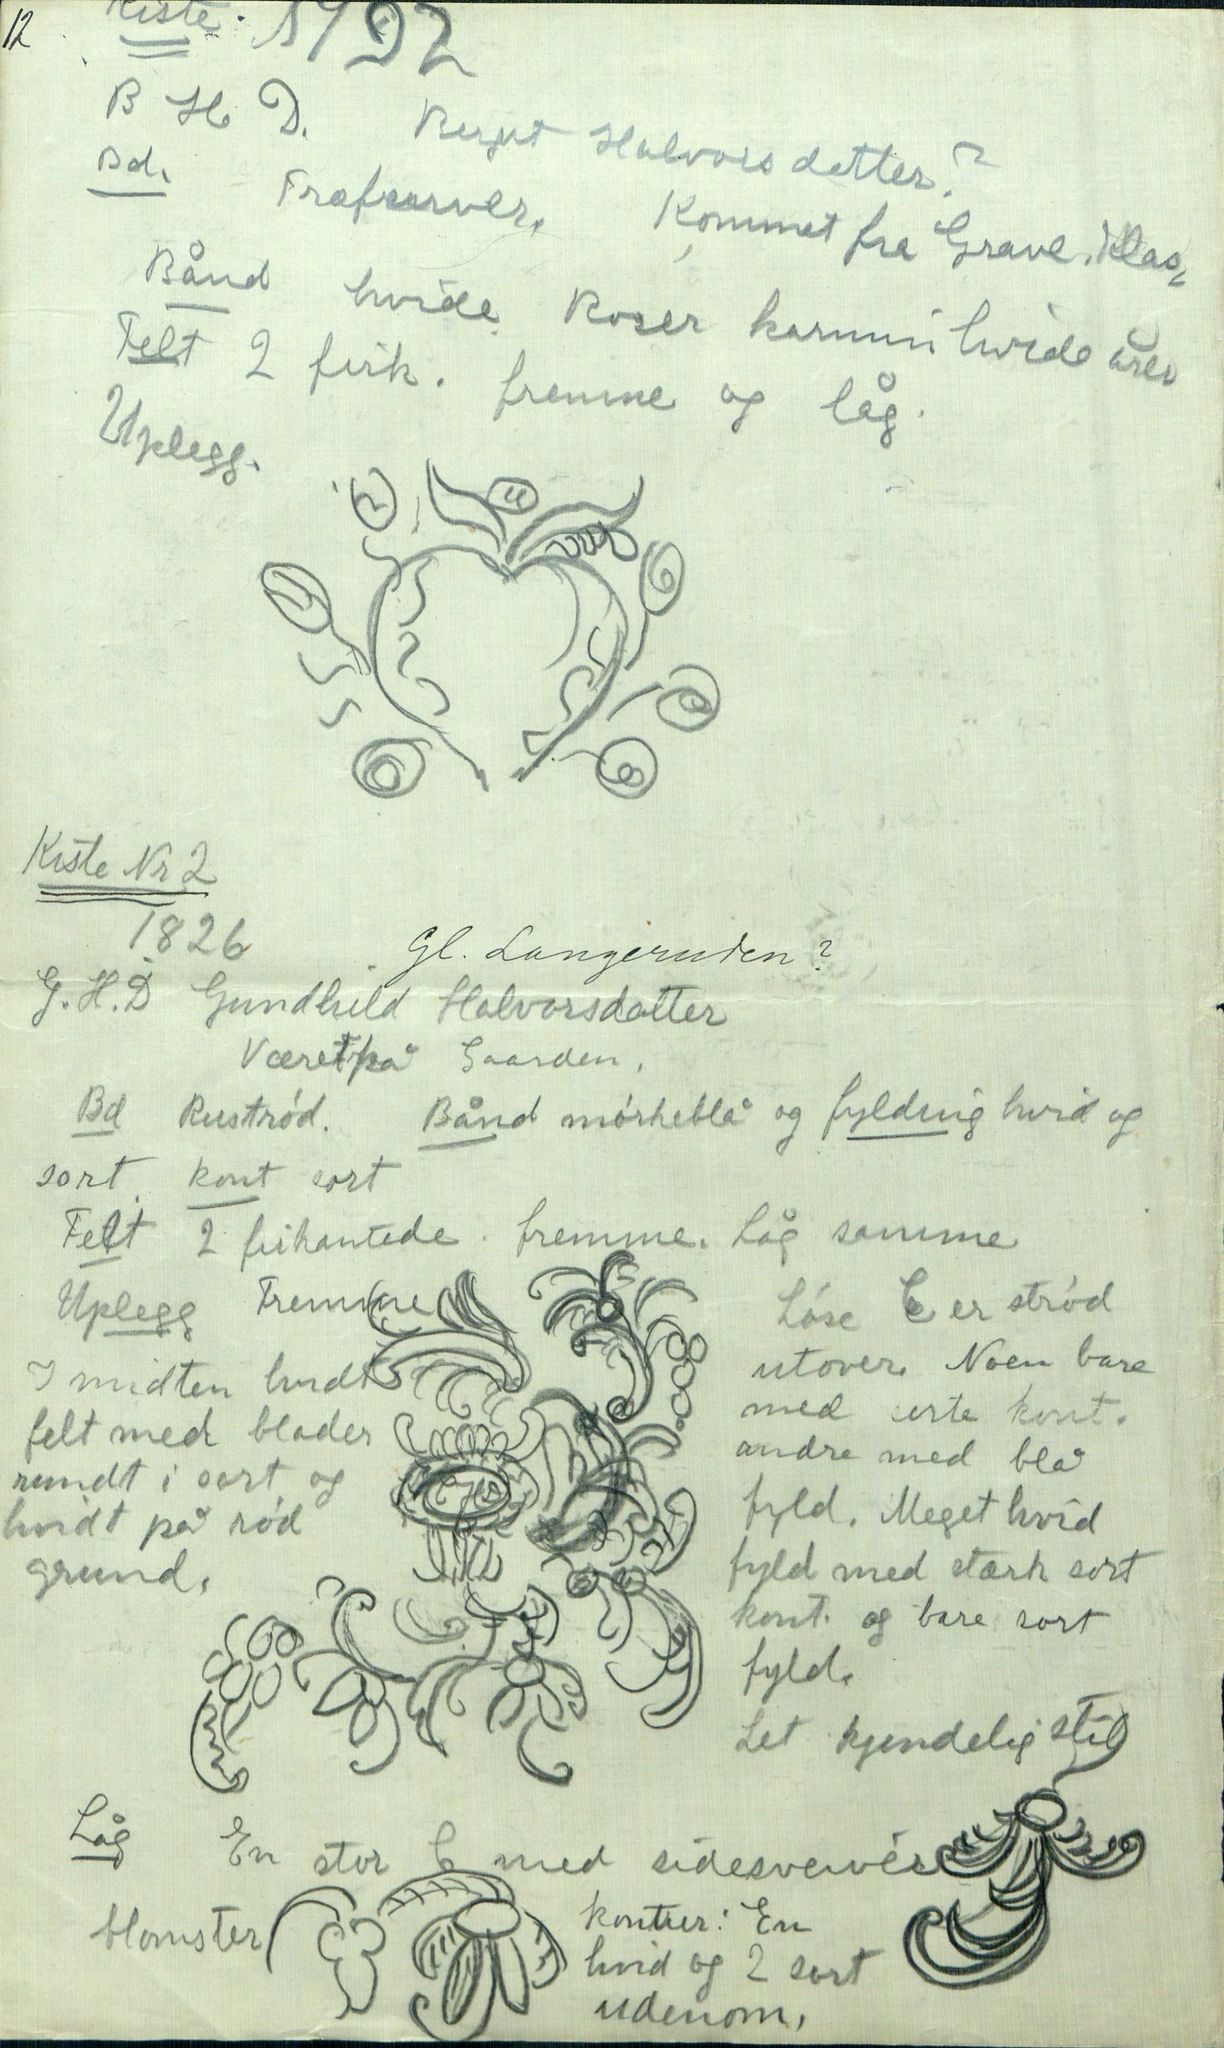 12
Kiste. 1792
B H D. Birgit Halvorsdatter?
Bd. Træfarver. Kommet fra Grave. Klas
Bånd hvide Roser karmin hvide årer
Felt 2 firk. fremme og låg.
Uplegg.
Kiste Nr 2
1826
Gl. Langeruden?
G. H. D Gundhild Halvorsdatter
Været på Gaarden.
Bd Rustrød. Bånd mørkeblå og fyldnig hvid og
sort. kont sort
Felt 2 firkantede. fremme. Låg samme
Uplegg Fremme
I midten hvidt
felt med blader
rundt i sort og
hvidt på rød
grund.
Løse C er strød
utover. Noen bare
med sorte kont.
andre med blå
fyld. Meget hvid
fyld med stærk sort
kont. og bare sort
fyld.
Let kjendelig stil
Låg En stor C med sidesveivér
blomster
konturer: En
hvid og 2 sort
udenom.